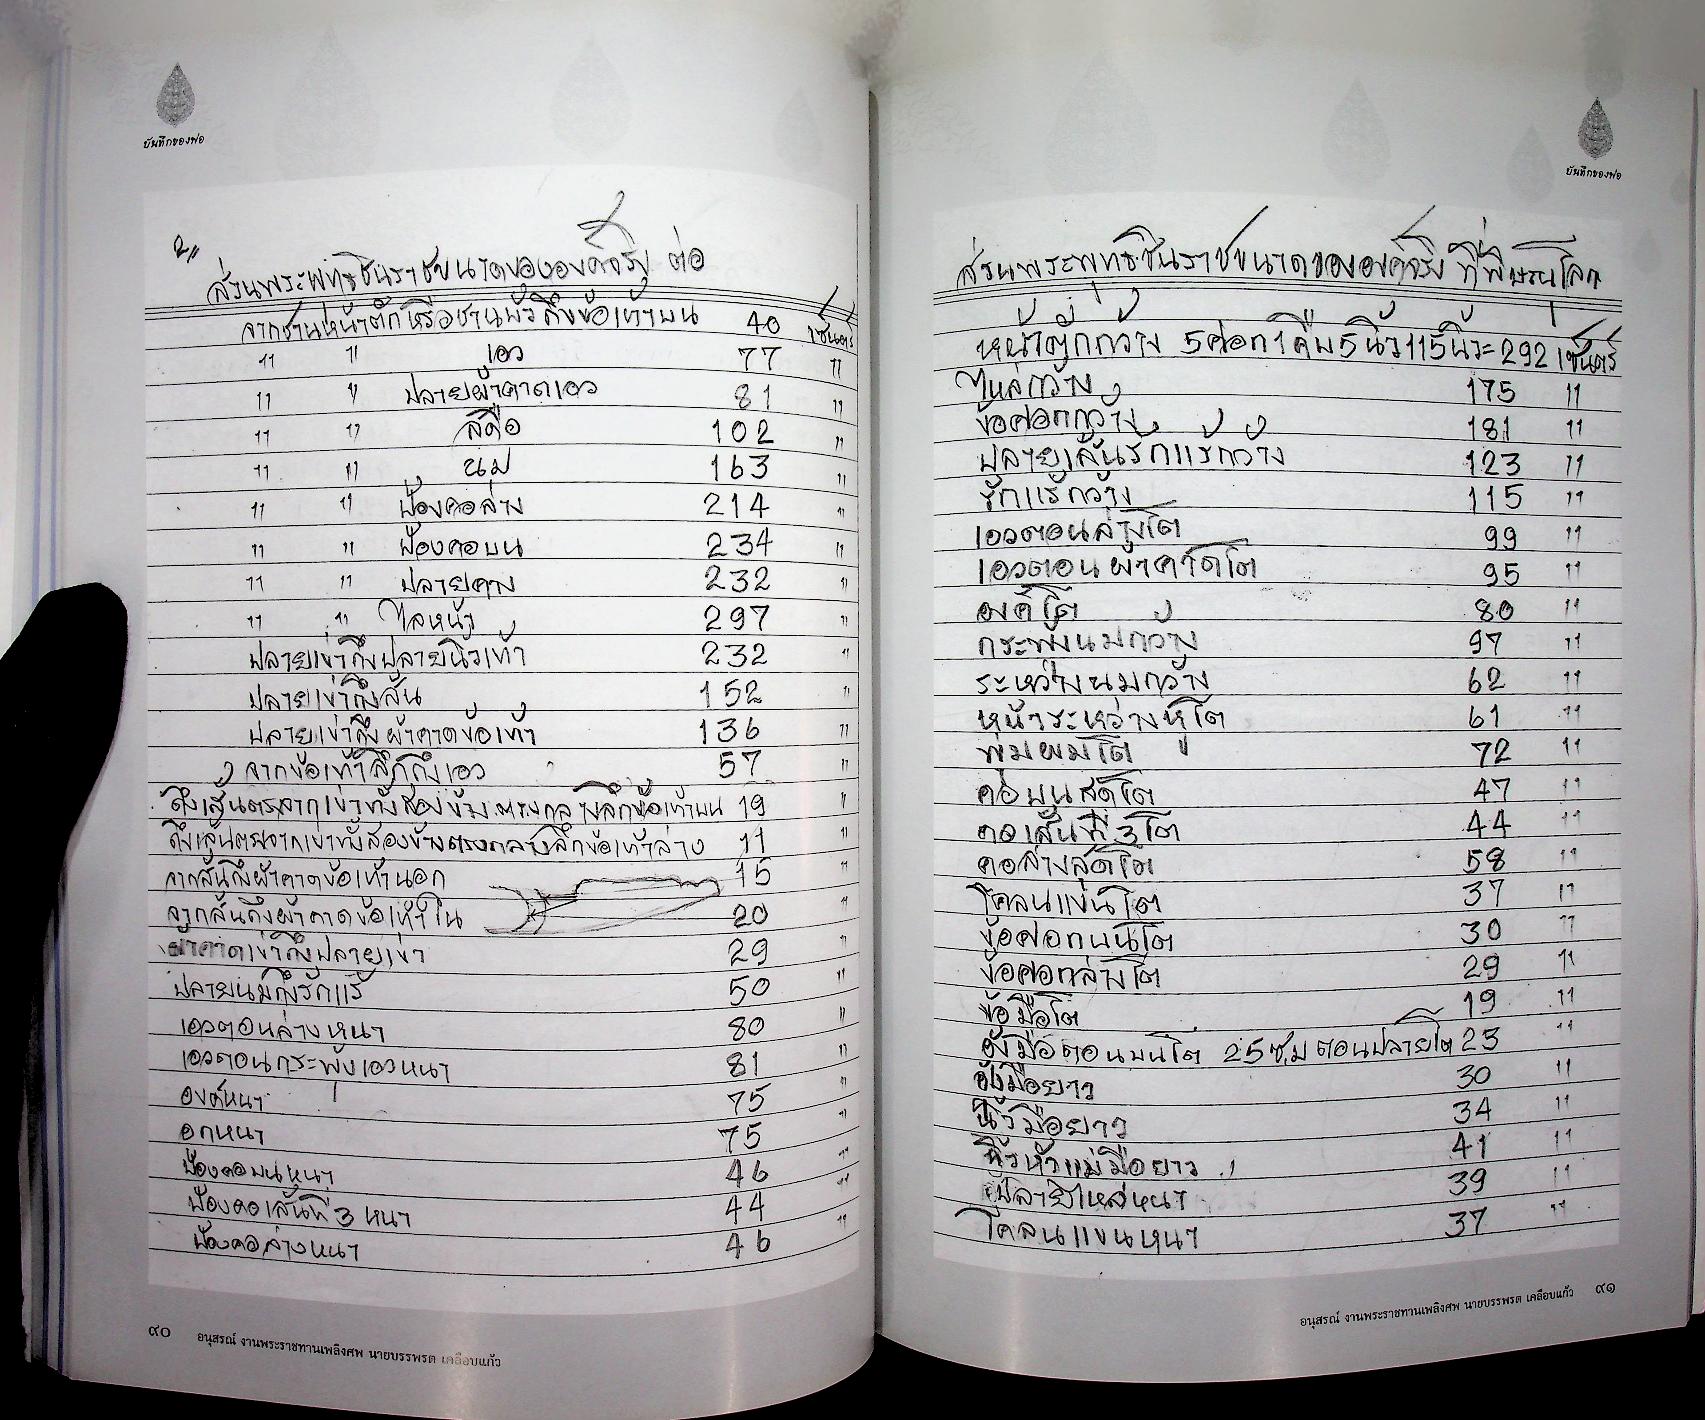 บันทึกของพ่อ
2,,
ส่วนพระพุทธชินราชขนาดขององค์จริง ต่อ
จากชานหน้าตักหรือชานพับถึงข้อเท้าบน 40 เซ็นตร์
" " เอว 77 "
" " ปลายผ้าคาดเอว 81 "
" " สดือ 102 "
" " นม 163 "
" " ป้องคอล่าง 214 "
" " ป้องคอบน 234 "
" " ปลายคาง 232 "
" " ไลหน้า 297 "
ปลายเข่าถึงปลายนิ้วเท้า 232 "
ปลายเข่าถึงส้น 152 "
ปลายเข่าถึงผ้าคาดข้อเท้า 136 "
จากข้อเท้าลึกถึงเอว 57 "
ดึงเส้นตรงจากเข่าทั้งสองข้างตรงกลางลึกข้อเท้าบน 19 "
ดึงเส้นตรงจากเข่าทั้งสองข้างตรงกลางลึกข้อเท้าล่าง 11 "
จากส้นถึงผ้าคาดข้อเท้านอก 15 "
จากส้นถึงผ้าคาดข้อเท้าใน 20 "
ผ้าคาดเข่าถึงปลายเข่า 29 "
ปลายนมถึงรักแร้ 50 "
เอวตอนล่างหนา 80 "
เอวตอนกระพุ้งเอวหนา 81 "
องค์หนา 75 "
อกหนา 75 "
ป้องคอบนหนา 46 "
ป้องคอเส้นที่ 3 หนา 44 "
ป้องคอล่างหนา 46 "
๙๐ อนุสรณ์ งานพระราชทานเพลิงศพ นายบรรพรต เคลือบแก้ว
บันทึกของพ่อ
ส่วนพระพุทธชินราชขนาดขององค์จริง ที่พิษณุโลก
หน้าตักกว้าง 5ศอก1คืบ5นิ้ว115นิ้ว=292 เซ็นตร์
ไหล่กว้าง 175 "
ข้อศอกกว้าง 181 "
ปลายเส้นรักแร้กว้าง 123 "
รักแร้กว้าง 115 "
เอวตอนล่างโต 99 "
เอวตอนผ้าคาดโต 95 "
องค์โต 80 "
กระพุ้งนมกว้าง 97 "
ระหว่างนมกว้าง 62 "
หน้าระหว่างหูโต 61 "
พุ่มผมโต 72 "
คอบนสุดโต 47 "
คอเส้นที่ 3 โต 44 "
คอล่างสุดโต 58 "
โคลนแขนโต 37 "
ข้อศอกบนโต 30 "
ข้อศอกล่างโต 29 "
ข้อมือโต 19 "
อุ้งมือตอนบนโต 25 ซ.ม ตอนปลายโต 23 "
อุ้งมือยาว 30 "
นิ้วมือยาว 34 "
นิ้วหัวแม่มือยาว 41 "
ปลายไหล่หนา 39 "
โคลนแขนหนา 37 "
อนุสรณ์ งานพระราชทานเพลิงศพ นายบรรพรต เคลือบแก้ว ๙๑